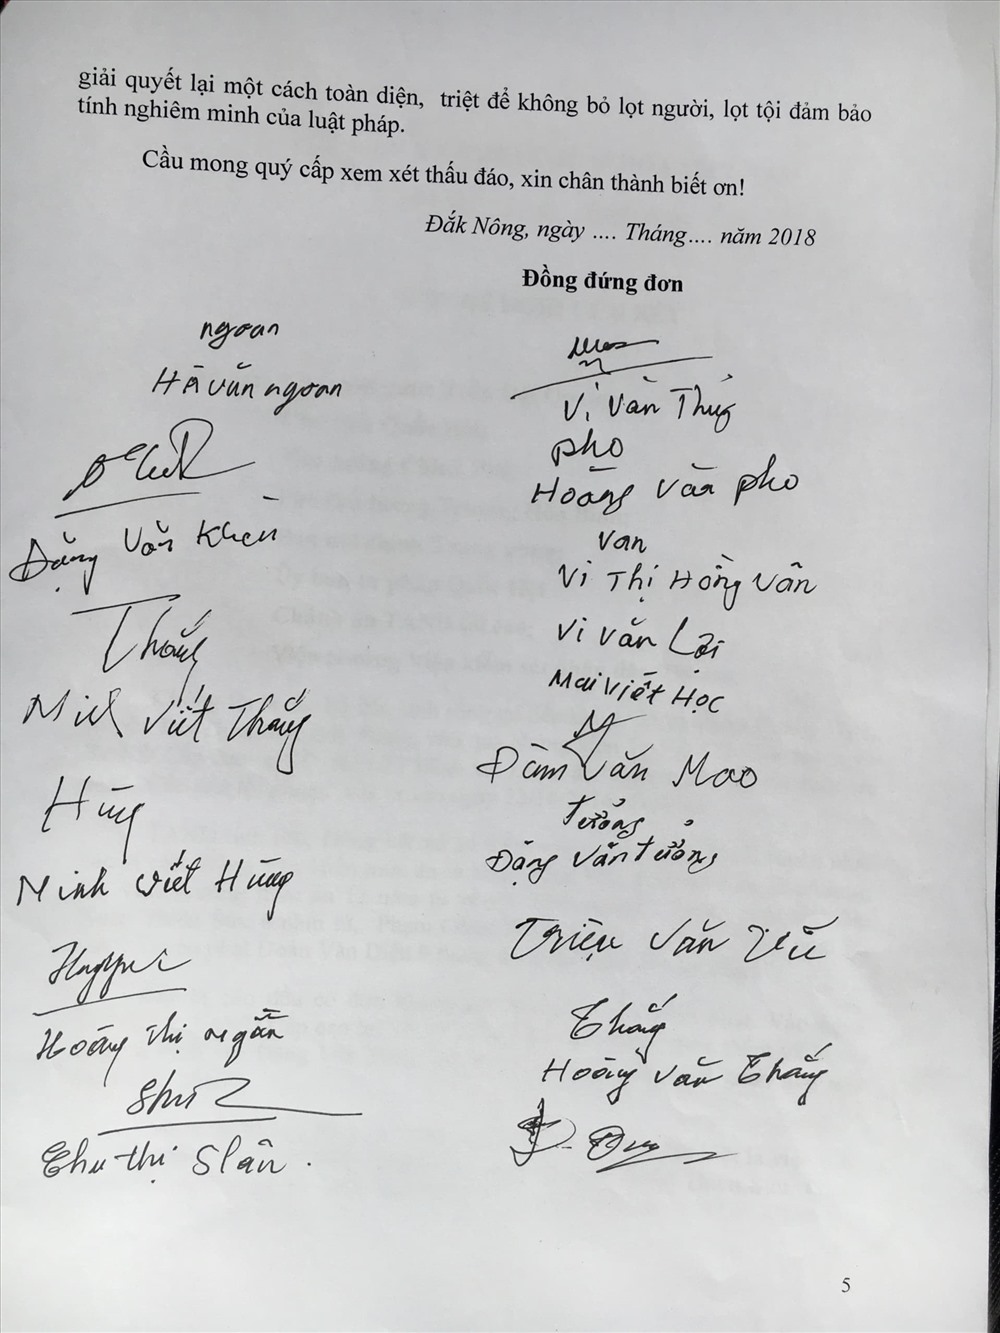 giải quyết lại một cách toàn diện, triệt để không bỏ lọt người, lọt tội đảm bảo
tính nghiêm minh của luật pháp.
Cầu mong quý cấp xem xét thấu đáo, xin chân thành biết ơn!
Đắk Nông, ngày .... Tháng.... năm 2018
Đồng đứng đơn
ngoan
Hà văn ngoan
Đặng Văn Khen
Thắng
Viết Thắng
Hùng
Minh Viết Hùng
Hoàng Thị Ngần
Chu Thị Slân .
Vi Văn Thuỷ
pho
Hoàng Văn pho
Van
Vi Thị Hồng Vân
Vi Văn Lại
Mai Viết Học
Đàm Văn Mao
Tưởng
Đặng Văn Tưởng
Triệu Văn Vũ
Thắng
Hoàng Văn Thắng
5